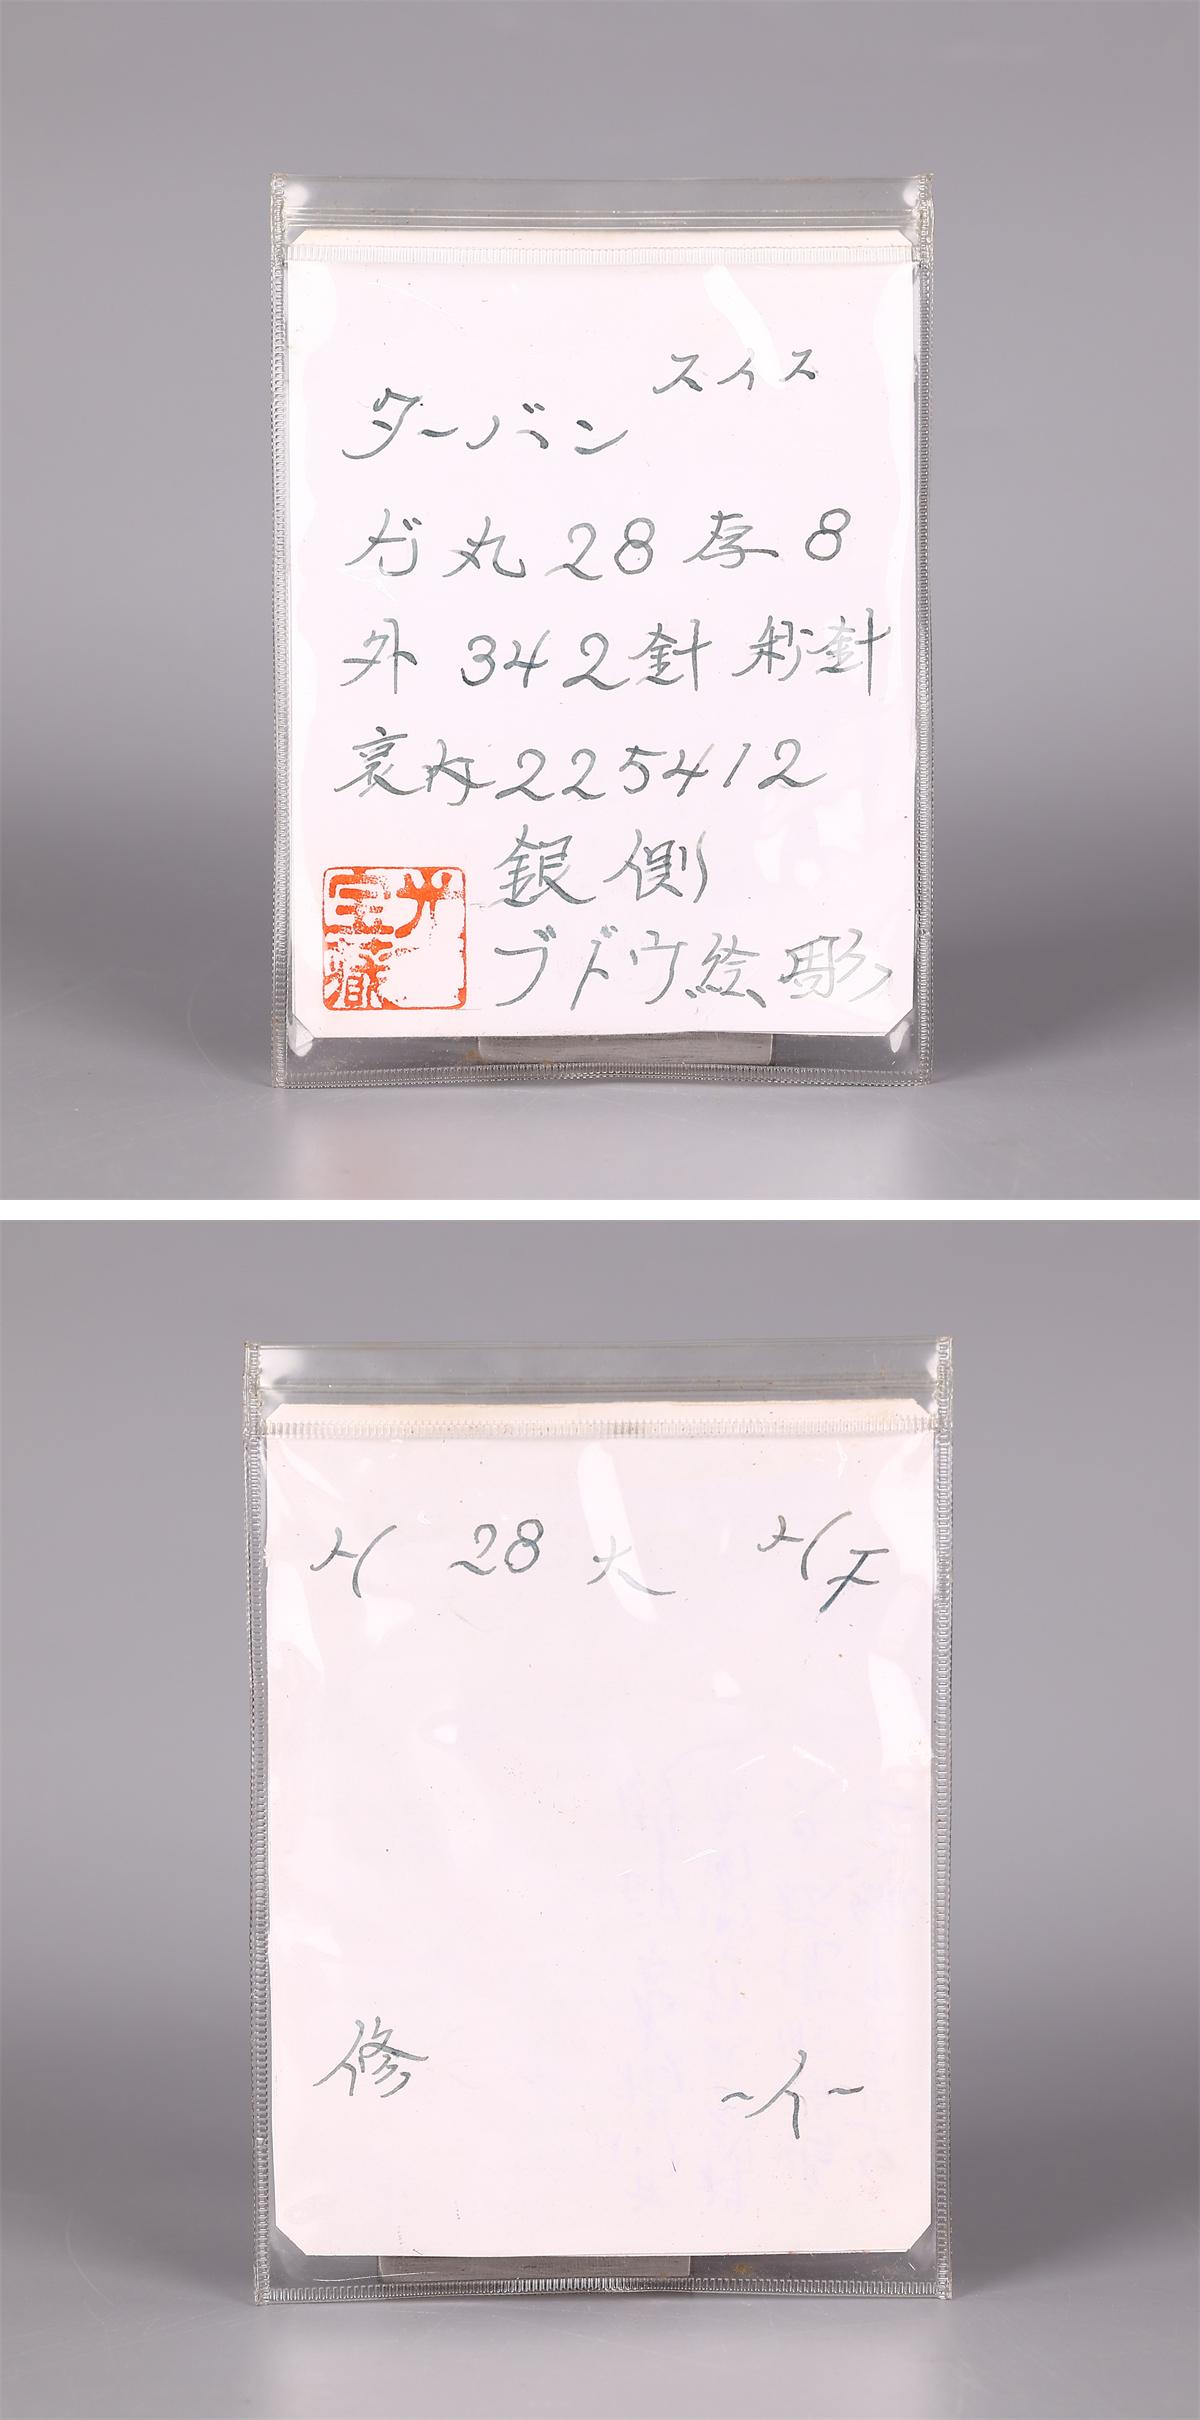 スイス
ターバン
丸 28 厚 8
外 34 2針 秒針
裏内 225412
銀側
ブドウ絵彫
28 大
修
〜イ〜